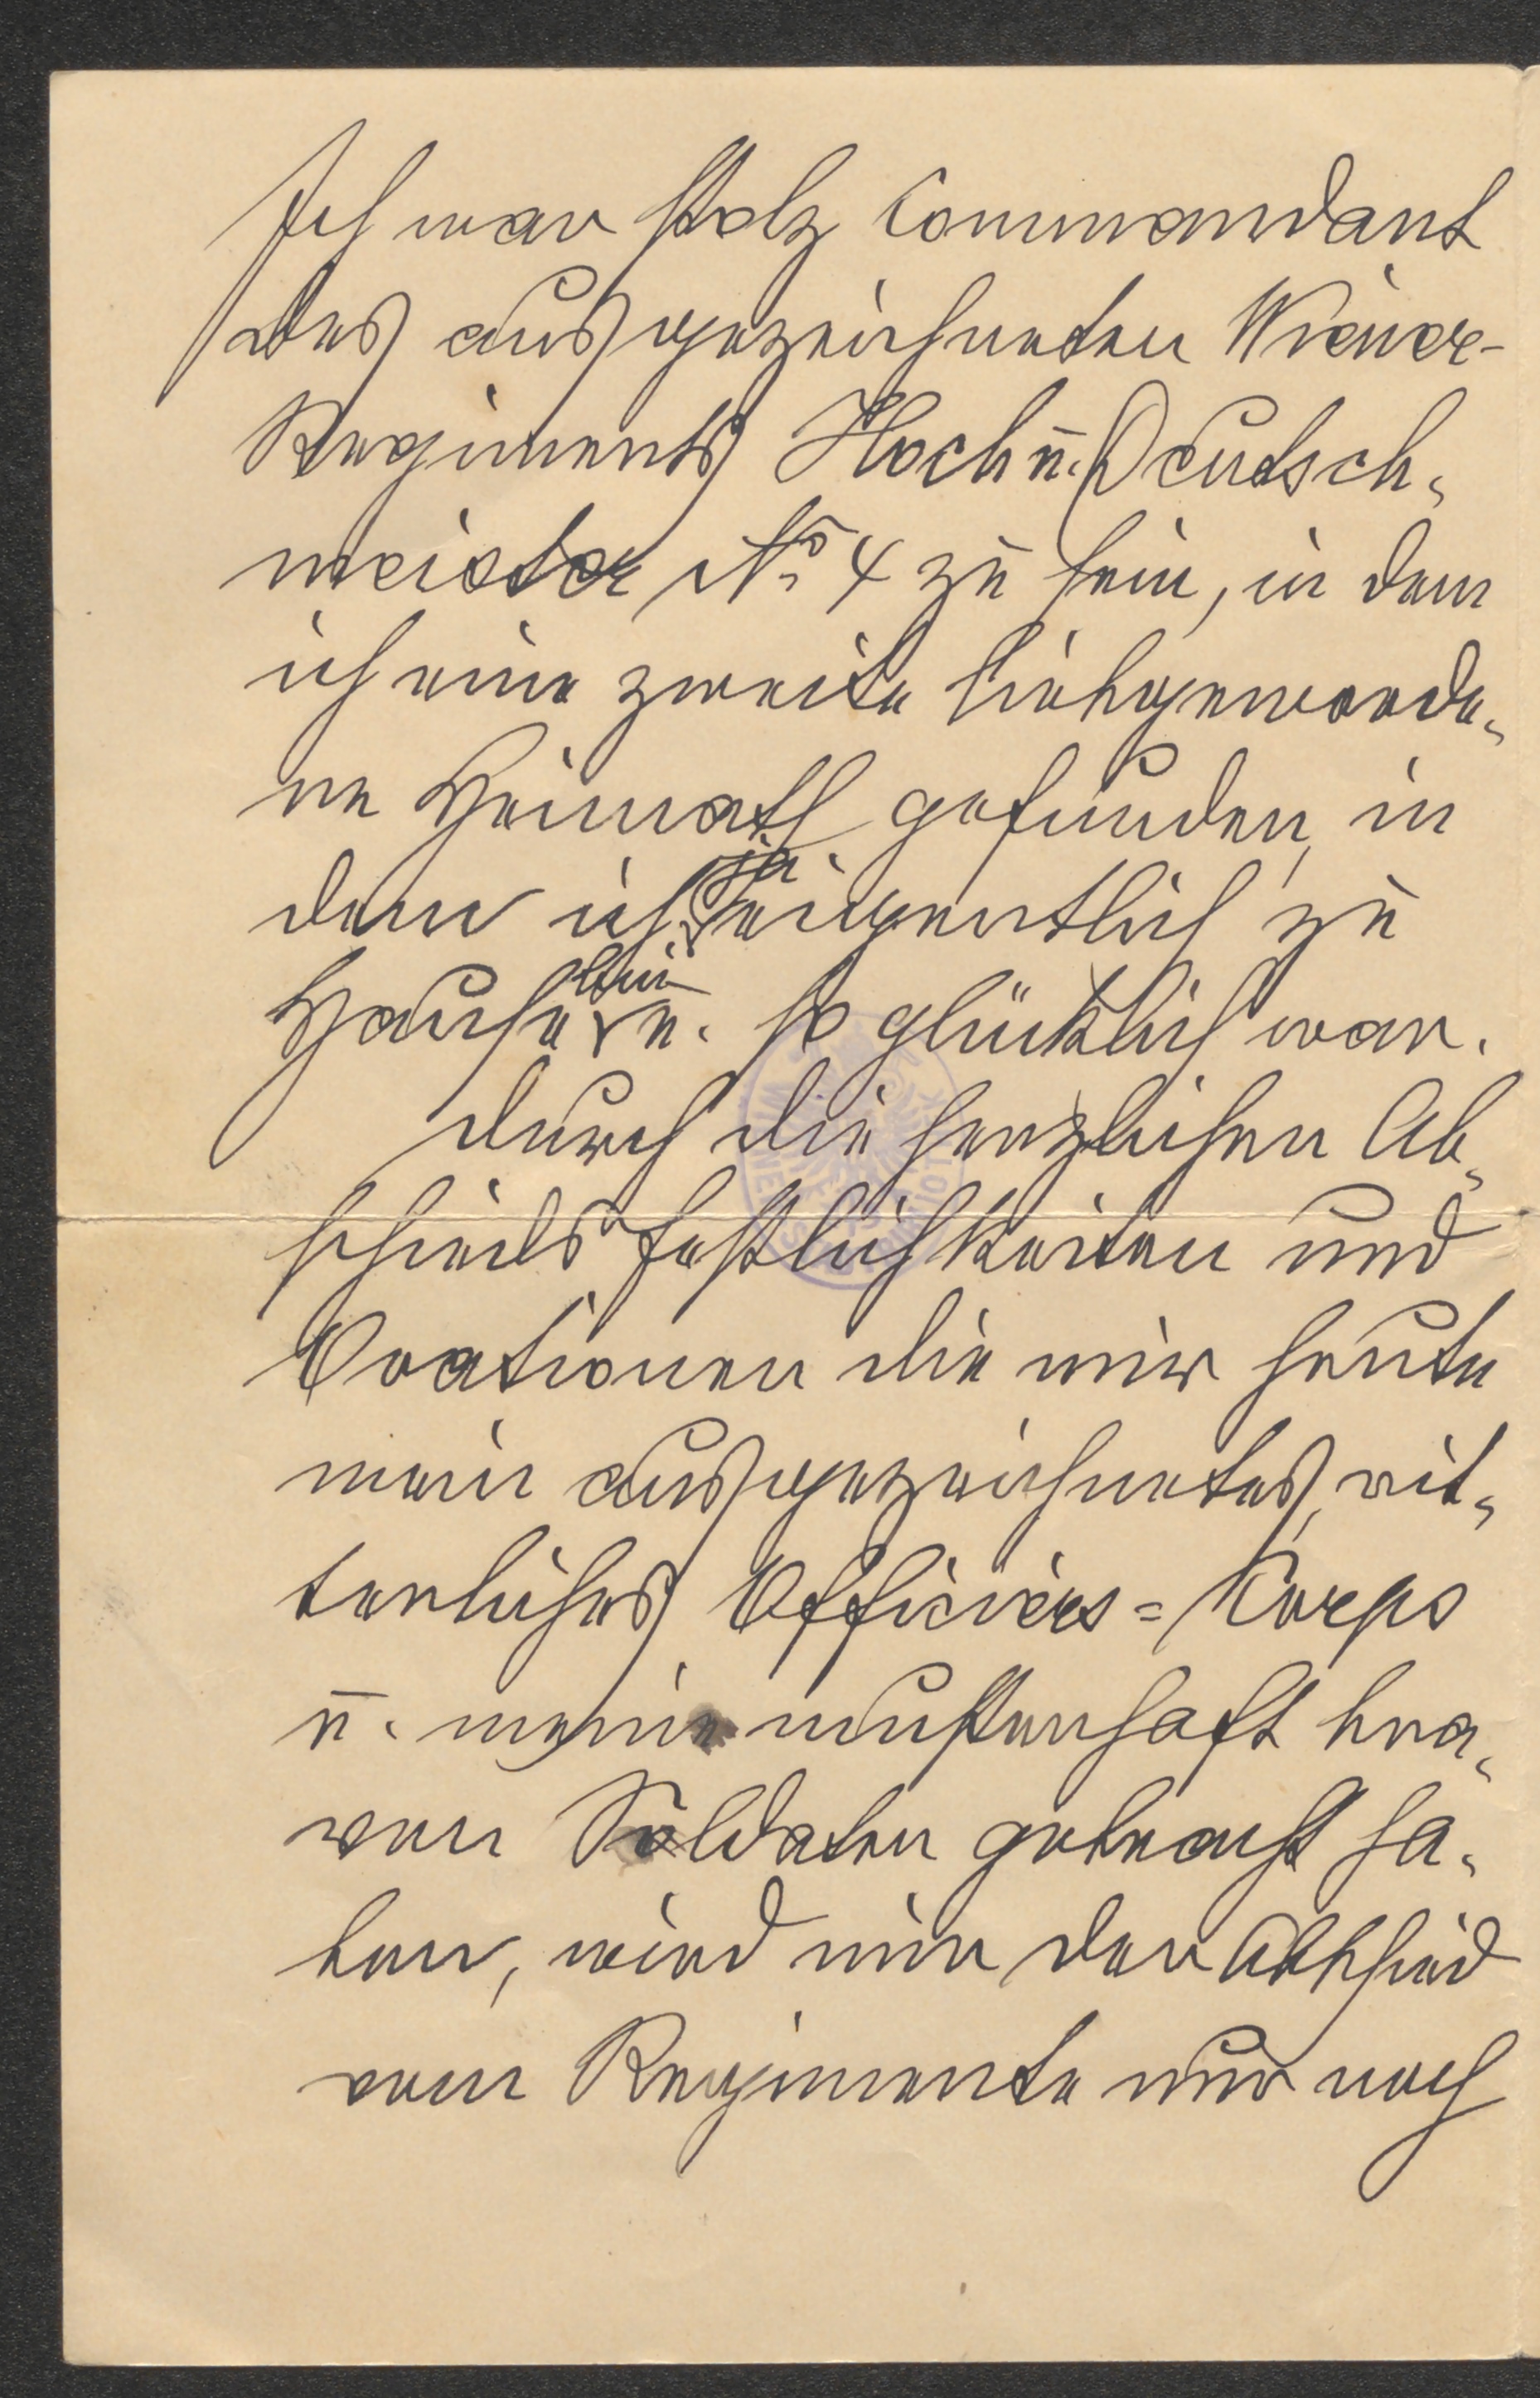 Ich war stolz Commandant
des ausgezeichneten Wiener-
Regiments Hoch u. Deutsch-
meister No 4 zu sein, in dem
ich eine zweite liebgeworde-
ne Heimath gefunden, in
dem ich ja eigentlich zu
Hause bin u. so glücklich war.
Durch die herzlichen Ab-
schieds Festlichkeiten und
Ovationen die mir heute
mein ausgezeichnetes, rit-
terliches Officiers=Korps
u. meine musterhaft bra-
ven Soldaten gebracht ha-
ben, wird mir der Abschied
vom Regimente nur noch